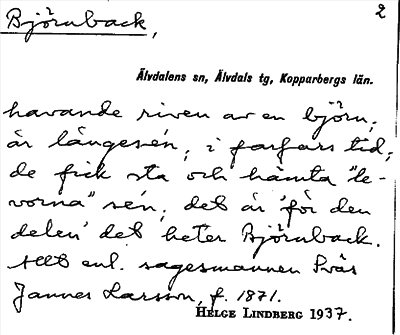 Björnback,
2
Älvdalens sn, Älvdals tg, Kopparbergs län.
havande riven av en björn,
är längesén, i farfars tid;
de fick sta och hämta "le-
vorna" sén; det är 'för den
delen' det heter Björnback.
Allt enl. sagesmannen
Jannes Larsson, f. 1871.
HELGE LINDBERG 1937.